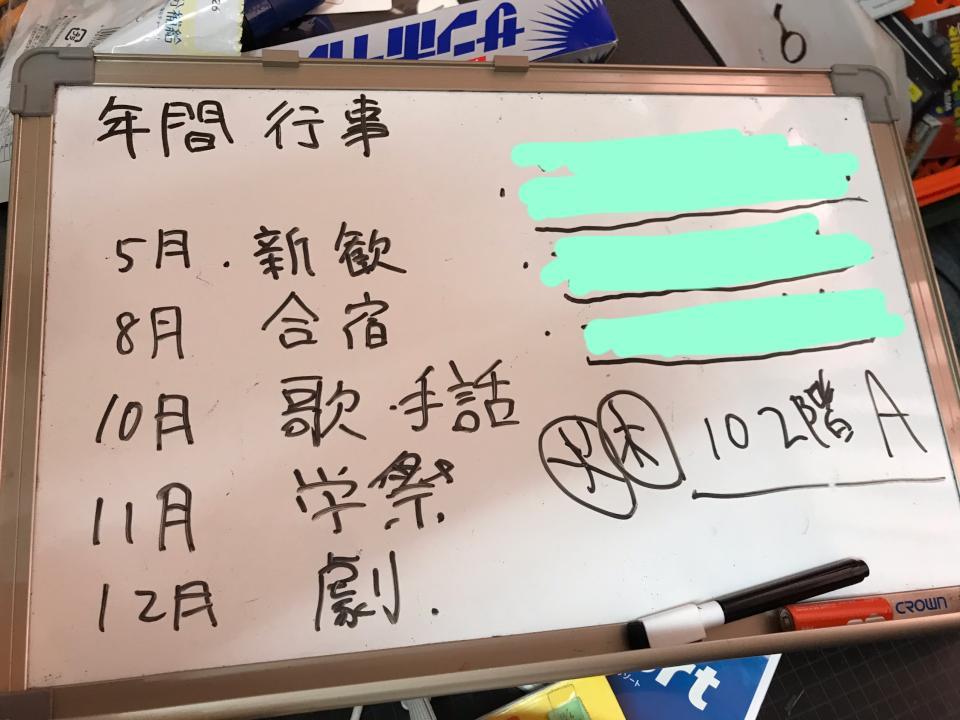 年間行事
5月・新歓
8月 合宿
10月 歌・手話
11月 学祭
12月 劇.
火 木 102階A
CROWN
サンポール